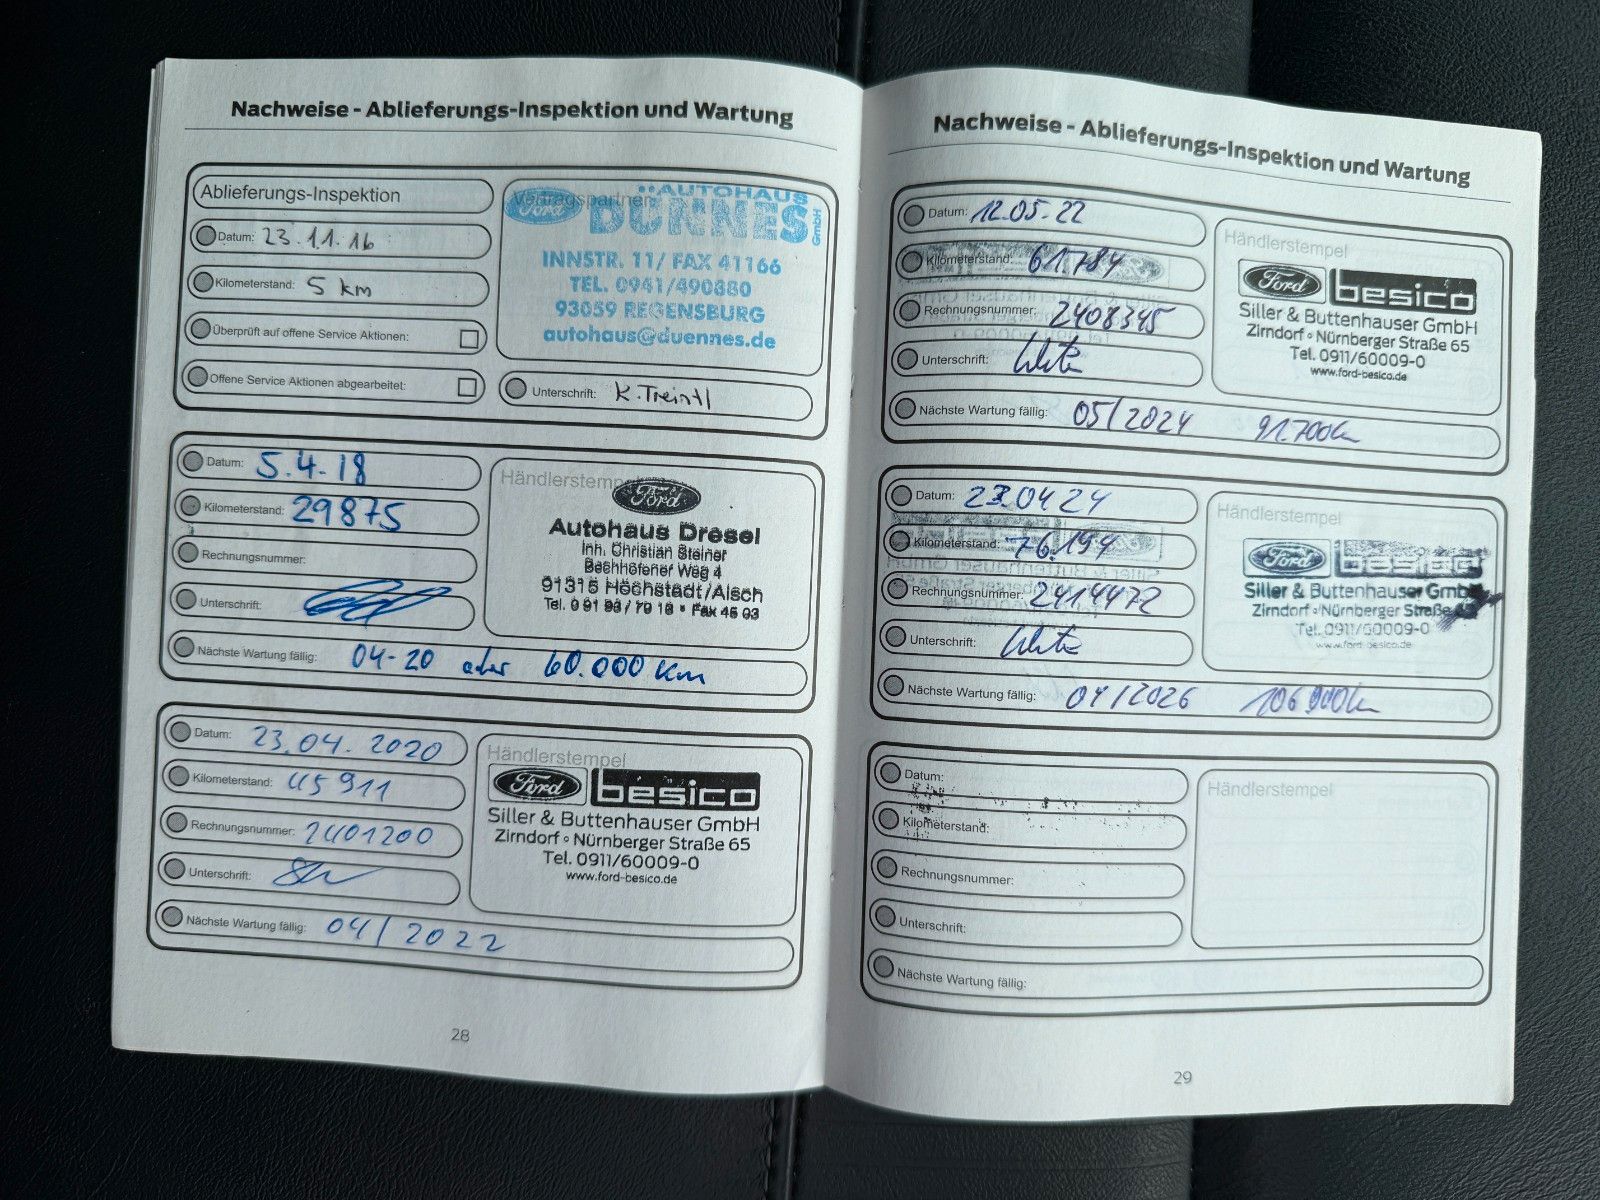 Nachweise - Ablieferungs-Inspektion und Wartung
Ablieferungs-Inspektion
Datum: 23.11.16
Kilometerstand: 5 km
Überprüft auf offene Service Aktionen:
Offene Service Aktionen abgearbeitet:
Vertragspartner
Ford AUTOHAUS
DÜNNES GmbH
INNSTR. 11/ FAX 41166
TEL. 0941/490880
93059 REGENSBURG
autohaus@duennes.de
Unterschrift: K. Treintl
Datum: 5.4.18
Kilometerstand: 29875
Rechnungsnummer:
Unterschrift:
Händlerstempel
Ford
Autohaus Dresel
Inh. Christian Steiner
Bechhofener Weg 4
91315 Höchstadt/Aisch
Nächste Wartung fällig: 04-20 oder 60.000 km
Datum: 23.04.2020
Kilometerstand: 45911
Rechnungsnummer: 2401200
Unterschrift:
Händlerstempel
Ford besico
Siller & Buttenhauser GmbH
Zirndorf • Nürnberger Straße 65
Tel. 0911/60009-0
www.ford-besico.de
Nächste Wartung fällig: 04/2022
28
Nachweise - Ablieferungs-Inspektion und Wartung
Datum: 12.05.22
Kilometerstand: 61.784
Rechnungsnummer: 2408345
Unterschrift:
Händlerstempel
Ford besico
Siller & Buttenhauser GmbH
Zirndorf • Nürnberger Straße 65
Tel. 0911/60009-0
www.ford-besico.de
Nächste Wartung fällig: 05/2024 91.700km
Datum: 23.04.24
Kilometerstand: 76.194
Rechnungsnummer: 2414472
Unterschrift:
Händlerstempel
Ford besico
Siller & Buttenhauser GmbH
Zirndorf • Nürnberger Straße 65
Tel. 0911/60009-0
www.ford-besico.de
Nächste Wartung fällig: 04/2026 106.000km
Datum:
Kilometerstand:
Rechnungsnummer:
Unterschrift:
Händlerstempel
Nächste Wartung fällig:
29